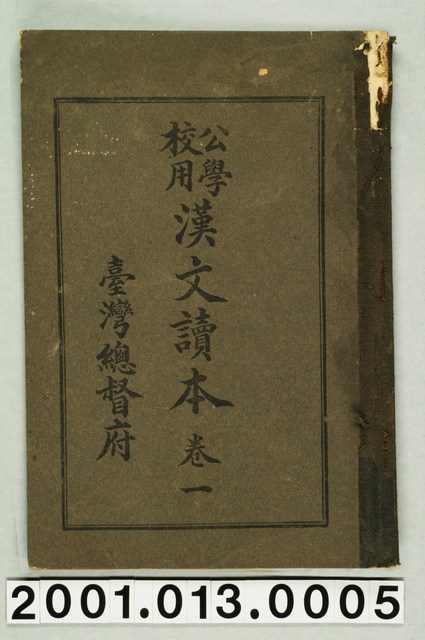 公學校用漢文讀本 卷一
臺灣總督府
2001.013.0005